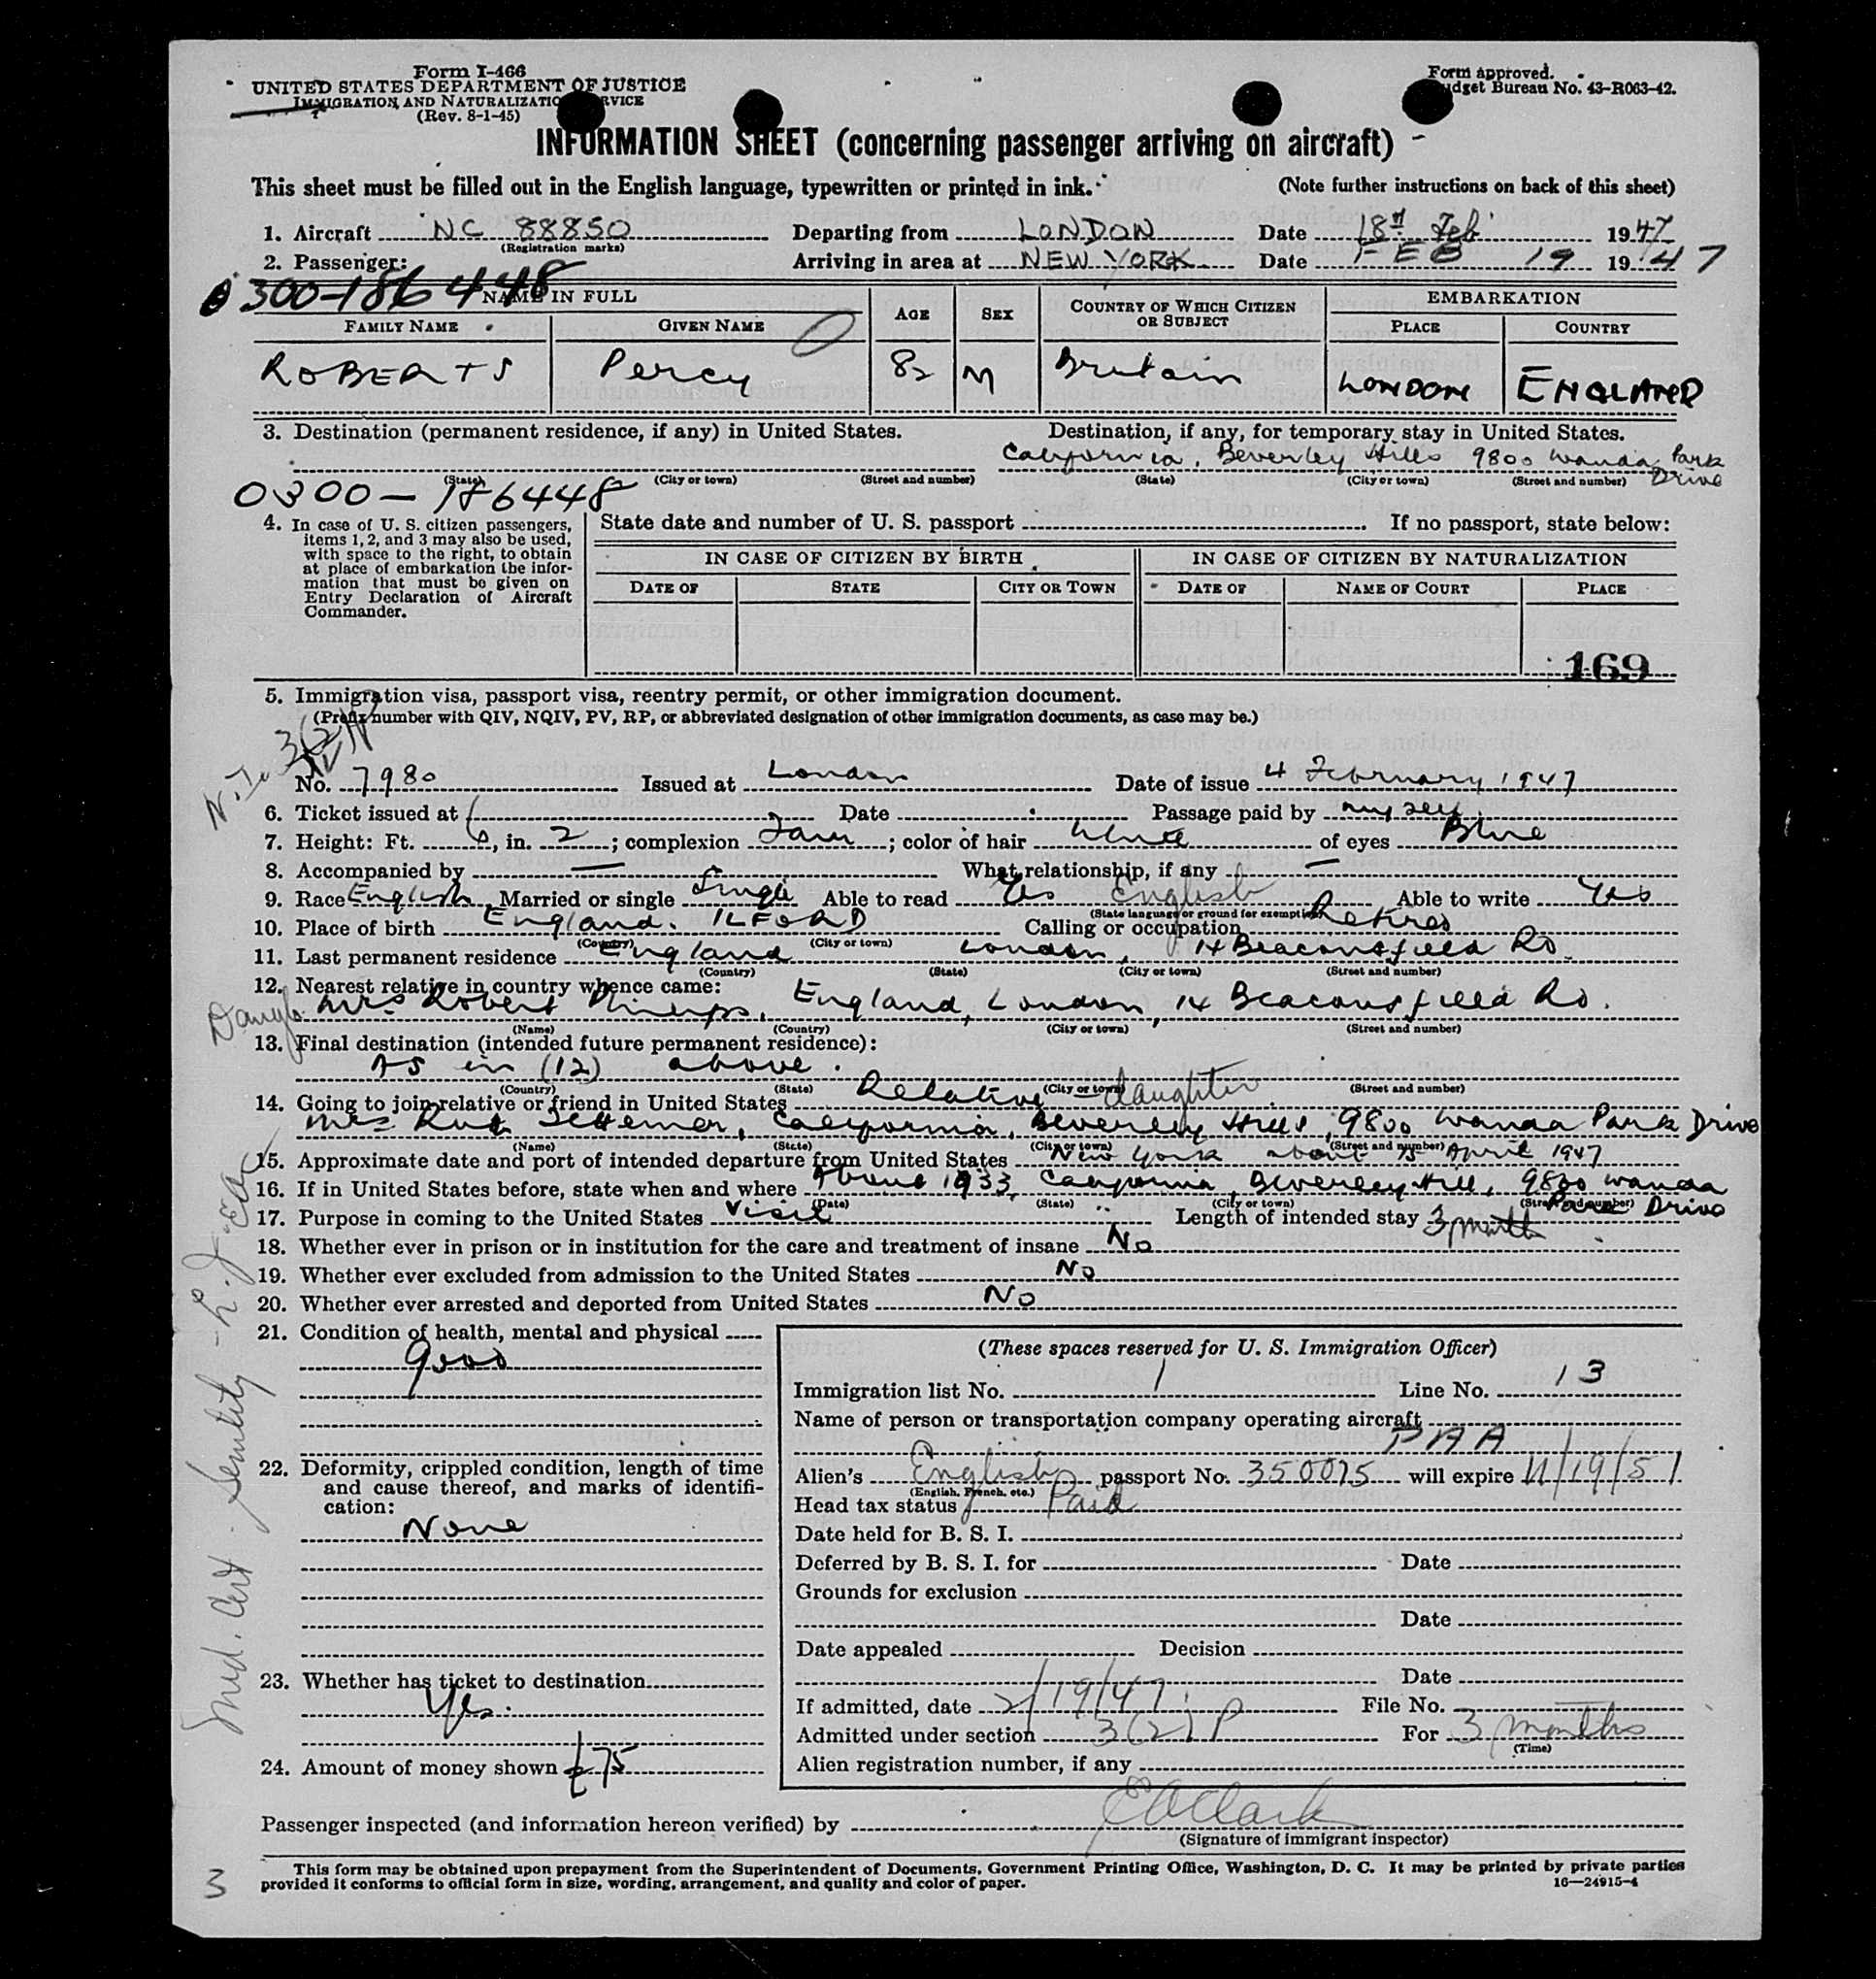 Form I-466
UNITED STATES DEPARTMENT OF JUSTICE
IMMIGRATION AND NATURALIZATION SERVICE
(Rev. 8-1-45)
Form approved.
Budget Bureau No. 43-R063-42.
INFORMATION SHEET (concerning passenger arriving on aircraft)
This sheet must be filled out in the English language, typewritten or printed in ink. (Note further instructions on back of this sheet)
1. Aircraft NC 88850 Departing from LONDON Date 18th Feb 1947
(Registration marks)
2. Passenger: Arriving in area at NEW YORK Date FEB 19 1947
0300-186448
NAME IN FULL AGE SEX COUNTRY OF WHICH CITIZEN OR SUBJECT EMBARKATION
FAMILY NAME GIVEN NAME PLACE COUNTRY
ROBERTS Percy 82 M Britain LONDON ENGLAND
3. Destination (permanent residence, if any) in United States. Destination, if any, for temporary stay in United States.
California, Beverley Hills 9800 Wanda Park Drive
(State) (City or town) (Street and number) (State) (City or town) (Street and number)
0300-186448
4. In case of U. S. citizen passengers, items 1, 2, and 3 may also be used, with space to the right, to obtain at place of embarkation the information that must be given on Entry Declaration of Aircraft Commander.
State date and number of U. S. passport If no passport, state below:
IN CASE OF CITIZEN BY BIRTH IN CASE OF CITIZEN BY NATURALIZATION
DATE OF STATE CITY OR TOWN DATE OF NAME OF COURT PLACE
169
5. Immigration visa, passport visa, reentry permit, or other immigration document.
(Prefix number with QIV, NQIV, PV, RP, or abbreviated designation of other immigration documents, as case may be.)
3(2)
No. 7980 Issued at London Date of issue 4 February 1947
6. Ticket issued at Date Passage paid by myself
7. Height: Ft. 6, in. 2; complexion Fair; color of hair White of eyes Blue
8. Accompanied by — What relationship, if any —
9. Race English Married or single Single Able to read Yes English Able to write Yes
(State language or ground for exemption)
10. Place of birth England. ILFORD Calling or occupation Retired
(Country) (City or town)
11. Last permanent residence England London, 14 Beaconsfield Rd.
(Country) (State) (City or town) (Street and number)
12. Nearest relative in country whence came:
Daugh. Mrs Robert England, London, 14 Beaconsfield Rd.
(Name) (Country) (City or town) (Street and number)
13. Final destination (intended future permanent residence):
As in (12) above.
(Country) (State) (City or town) (Street and number)
14. Going to join relative or friend in United States Relative — daughter
Mrs California, Beverley Hills, 9800 Wanda Park Drive
(Name) (State) (City or town) (Street and number)
15. Approximate date and port of intended departure from United States New York about 15 April 1947
16. If in United States before, state when and where About 1933, California, Beverley Hill, 9800 Wanda Park Drive
(Date) (State) (City or town) (Street and number)
17. Purpose in coming to the United States Visit Length of intended stay 3 months
18. Whether ever in prison or in institution for the care and treatment of insane No
19. Whether ever excluded from admission to the United States No
20. Whether ever arrested and deported from United States No
21. Condition of health, mental and physical
Good
22. Deformity, crippled condition, length of time and cause thereof, and marks of identification:
None
23. Whether has ticket to destination
Yes.
24. Amount of money shown £75
Med. Cert. Senility
(These spaces reserved for U. S. Immigration Officer)
Immigration list No. 1 Line No. 13
Name of person or transportation company operating aircraft
PAA
Alien's English passport No. 350075 will expire 11/19/51
(English, French, etc.)
Head tax status Paid
Date held for B. S. I.
Deferred by B. S. I. for Date
Grounds for exclusion
Date
Date appealed Decision
Date
If admitted, date 2/19/47 File No.
Admitted under section 3(2) P For 3 months
(Time)
Alien registration number, if any
Passenger inspected (and information hereon verified) by E O Clark
(Signature of immigrant inspector)
3
This form may be obtained upon prepayment from the Superintendent of Documents, Government Printing Office, Washington, D. C. It may be printed by private parties
provided it conforms to official form in size, wording, arrangement, and quality and color of paper. 16—24915-4